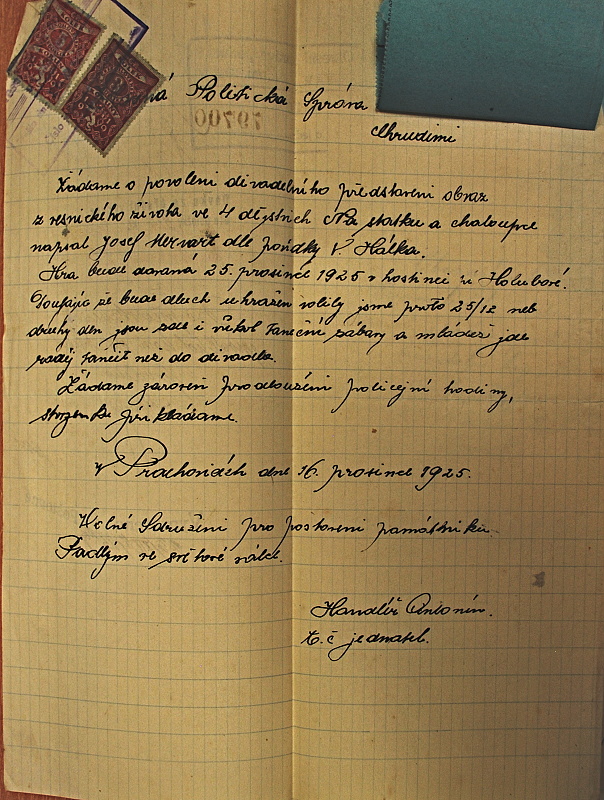 ná Politická Správa
Chrudimi
Žádáme o povoleni divadelního představeni obraz
z vesnického života ve 4 dějstvích Na statku a chaloupce
napsal Josef Mervart dle povídky V. Hálka.
Hra bude davaná 25. prosince 1925 v hostinci u Holubové.
Doufajic že bude dluch uhražen volily jsme proto 25/12 neb
druhy den jsou zde i vukol taneční zábavy a mládež jde
raděj tančit než do divadla.
Žádáme zároveň prodloužení policejní hodiny,
přikládáme.
V Prachovicích dne 16. prosince 1925.
Volné Sdruženi pro postaveni pamatniku
Padlým ve světové válce.
Handlíř Antonín.
t.č jednatel.